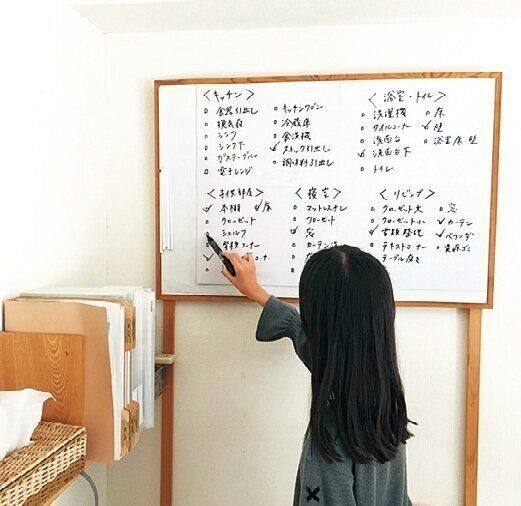 ＜キッチン＞
食器引出し
換気扇
シンク
シンク下
ガステーブル
電子レンジ
キッチンワゴン
冷蔵庫
食洗機
ストック引出し
調味料引出し
＜浴室・トイレ＞
洗濯機
タイルコーナー
洗面台
洗面台下
トイレ
床
壁
浴室床 壁
＜子供部屋＞
本棚 床
クローゼット
シェルフ
コーナー
＜寝室＞
マットレス
クローゼット
窓
カーテン
＜リビング＞
クローゼット大
クローゼット小
書類整理
テキストコーナー
窓
カーテン
ベランダ